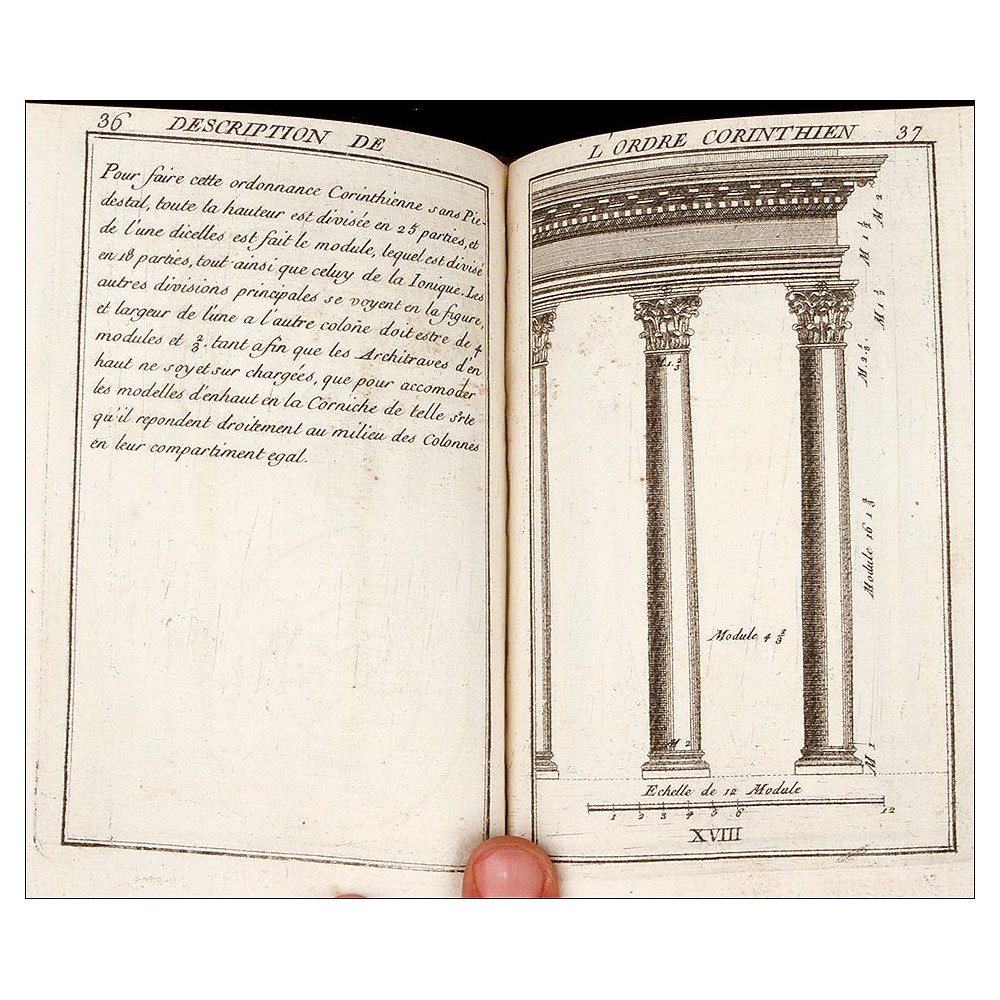 36 DESCRIPTION DE
Pour faire cette ordonnance Corinthienne sans Pie-
destal, toute la hauteur est divisée en 25 parties, et
de l'une dicelles est fait le module, lequel est divisé
en 18 parties, tout ainsi que celuy de la Ionique. Les
autres divisions principales se voyent en la figure,
et largeur de l'une a l'autre coloñe doit estre de 4
modules et 2/3. tant afin que les Architraves d'en
haut ne soyet sur chargées, que pour accomoder
les modelles d'enhaut en la Corniche de telle sorte
qu'il repondent droitement au milieu des Colonnes
en leur compartiment egal.
L'ORDRE CORINTHIEN 37
M 2
M 1 1/2
M 1 1/2
M 2 1/3
M 1 2/3
Module 16 1/3
Module 4 2/3
M 2
M 1
Echelle de 12 Module
1 2 3 4 5 6 12
XVIII